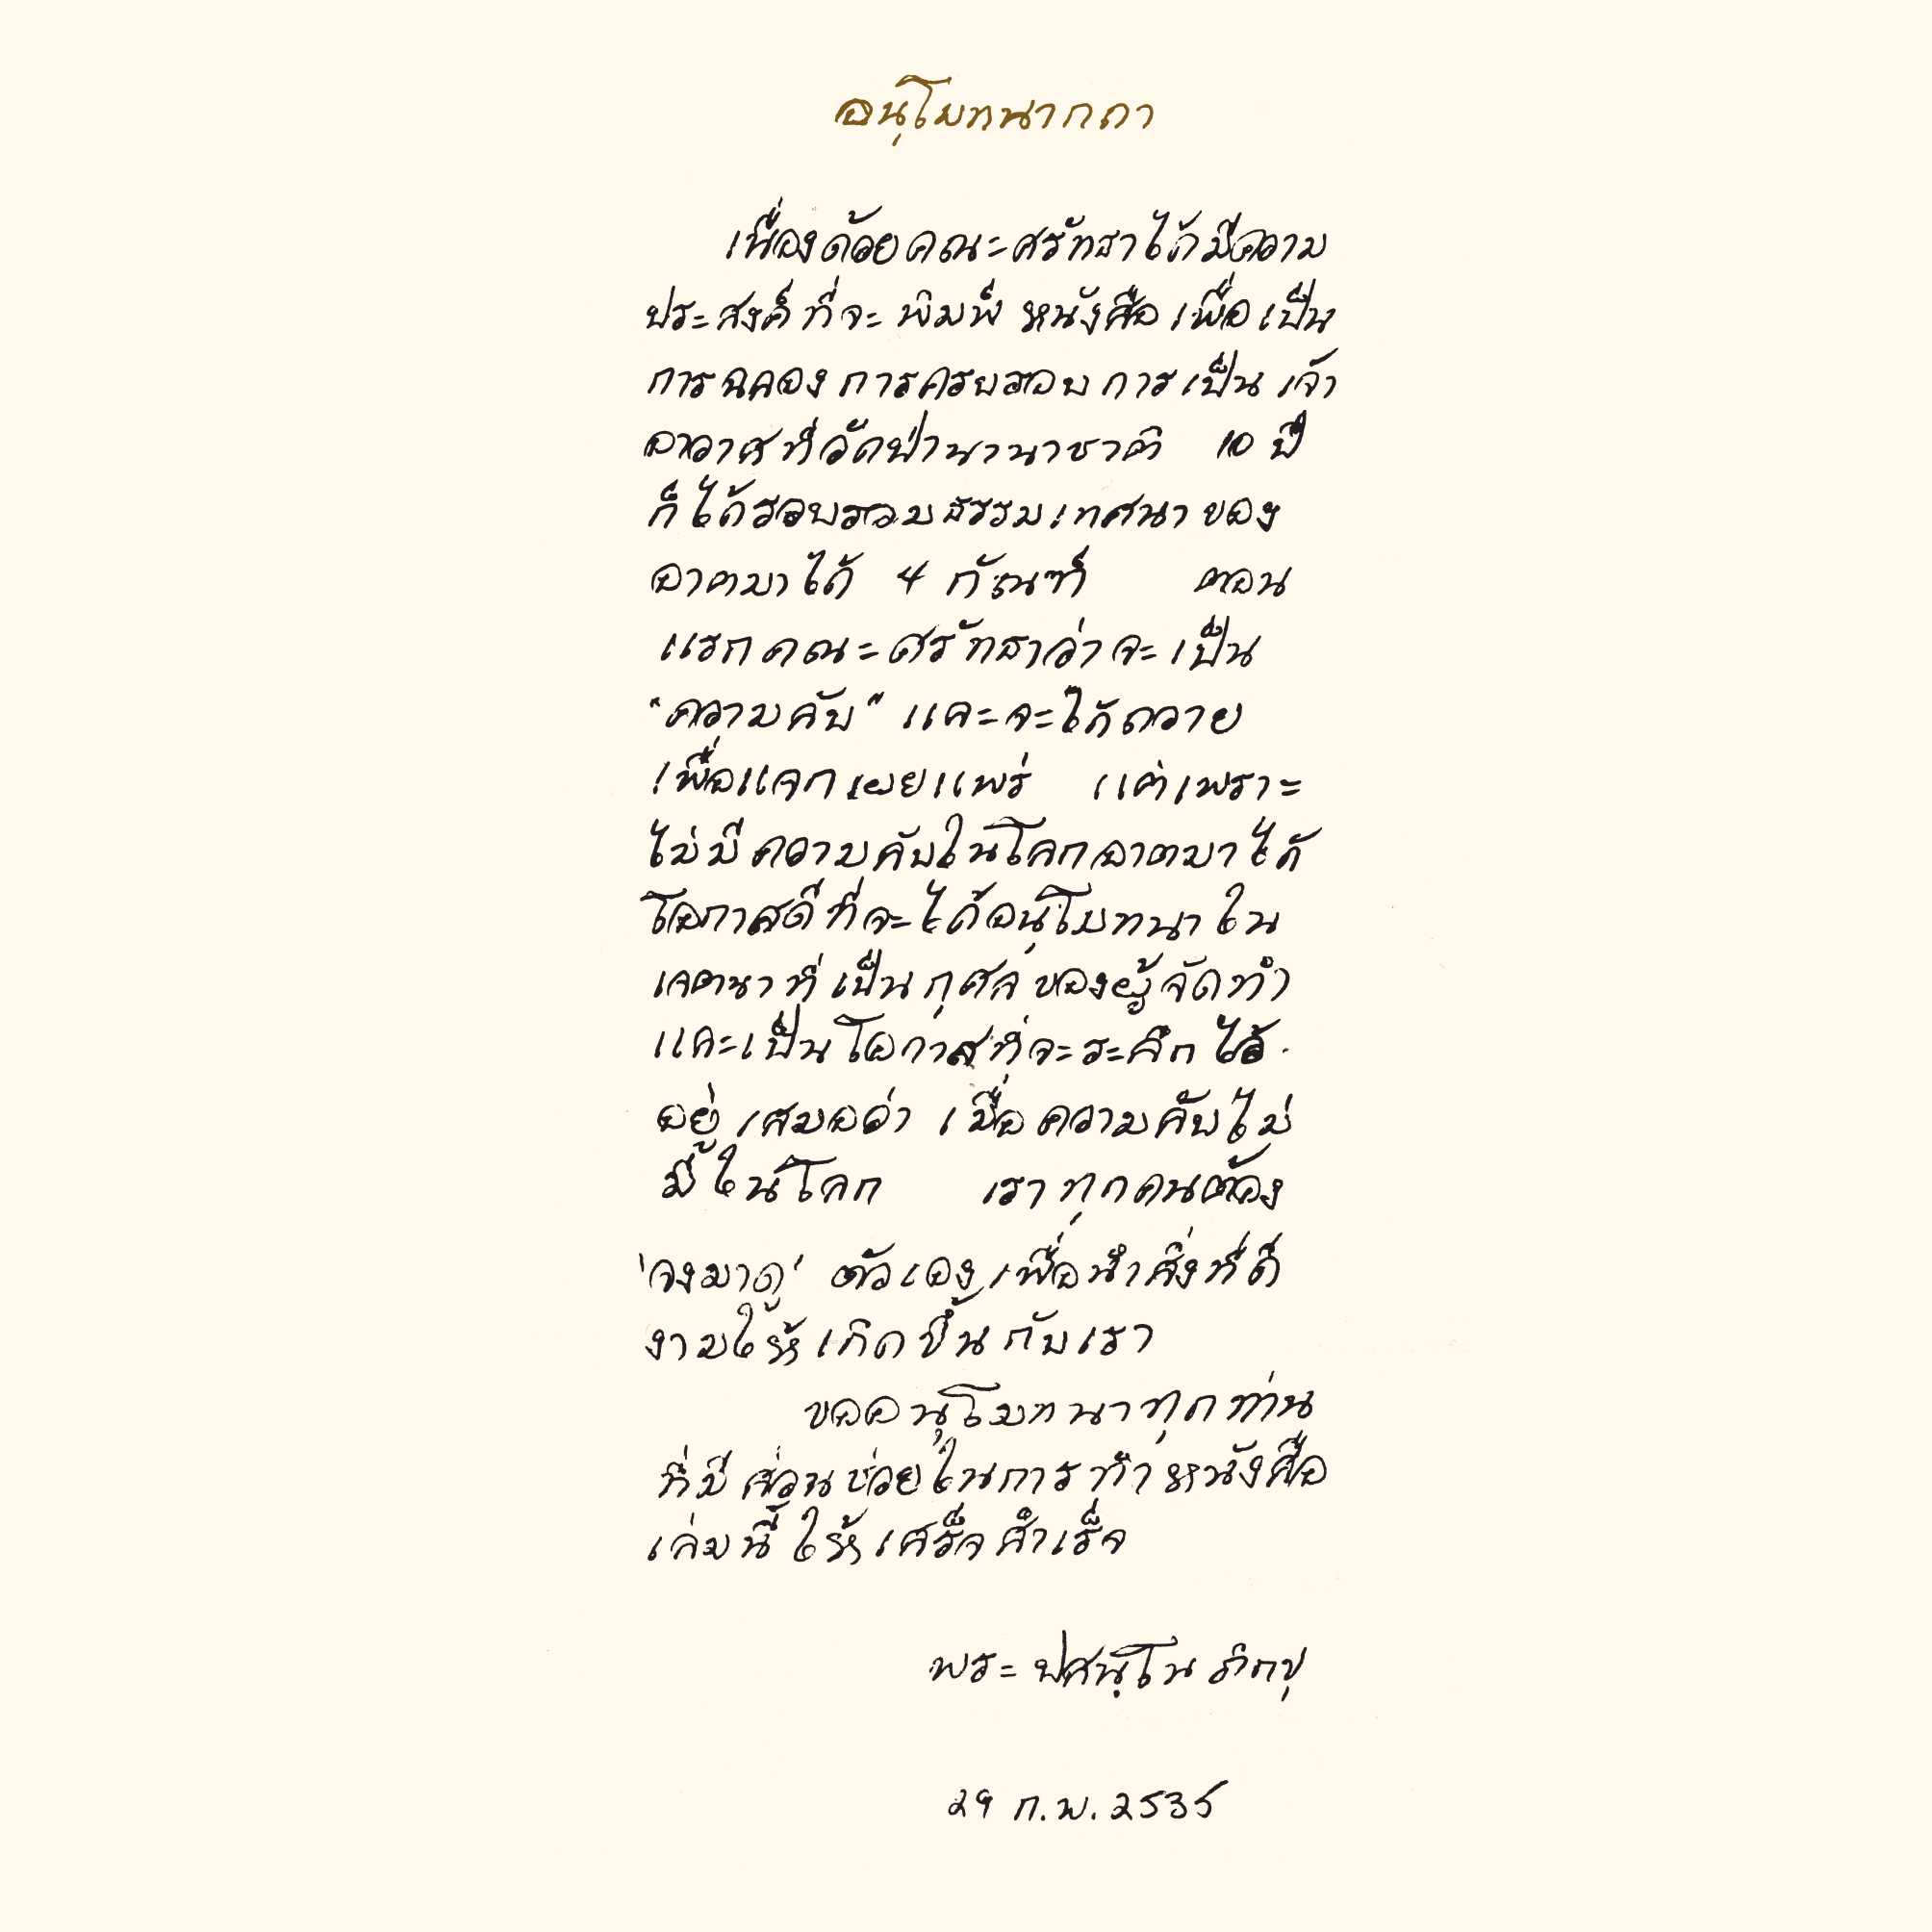 อนุโมทนากถา
เนื่องด้วยคณะศรัทธาได้มีความ
ประสงค์ที่จะพิมพ์หนังสือเพื่อเป็น
การฉลองการครบรอบการเป็นเจ้า
อาวาสที่วัดป่านานาชาติ 10 ปี
ก็ได้รวบรวมธรรมเทศนาของ
อาตมาได้ 4 กัณฑ์ ตอน
แรกคณะศรัทธาว่าจะเป็น
"ความลับ" และจะได้ถวาย
เพื่อแจกเผยแพร่ แต่เพราะ
ไม่มีความลับในโลกอาตมาได้
โอกาสดีที่จะได้อนุโมทนาใน
เจตนาที่เป็นกุศลของผู้จัดทำ
และเป็นโอกาสที่จะระลึกไว้
อยู่เสมอว่า เมื่อความลับไม่
มีในโลก เราทุกคนต้อง
'จงมาดู' ตัวเองเพื่อนำสิ่งที่ดี
งามให้เกิดขึ้นกับเรา
ขออนุโมทนาทุกท่าน
ที่มีส่วนช่วยในการทำหนังสือ
เล่มนี้ให้เสร็จสำเร็จ
พระ ปสนฺโน ภิกขุ
29 ก.พ. 2535